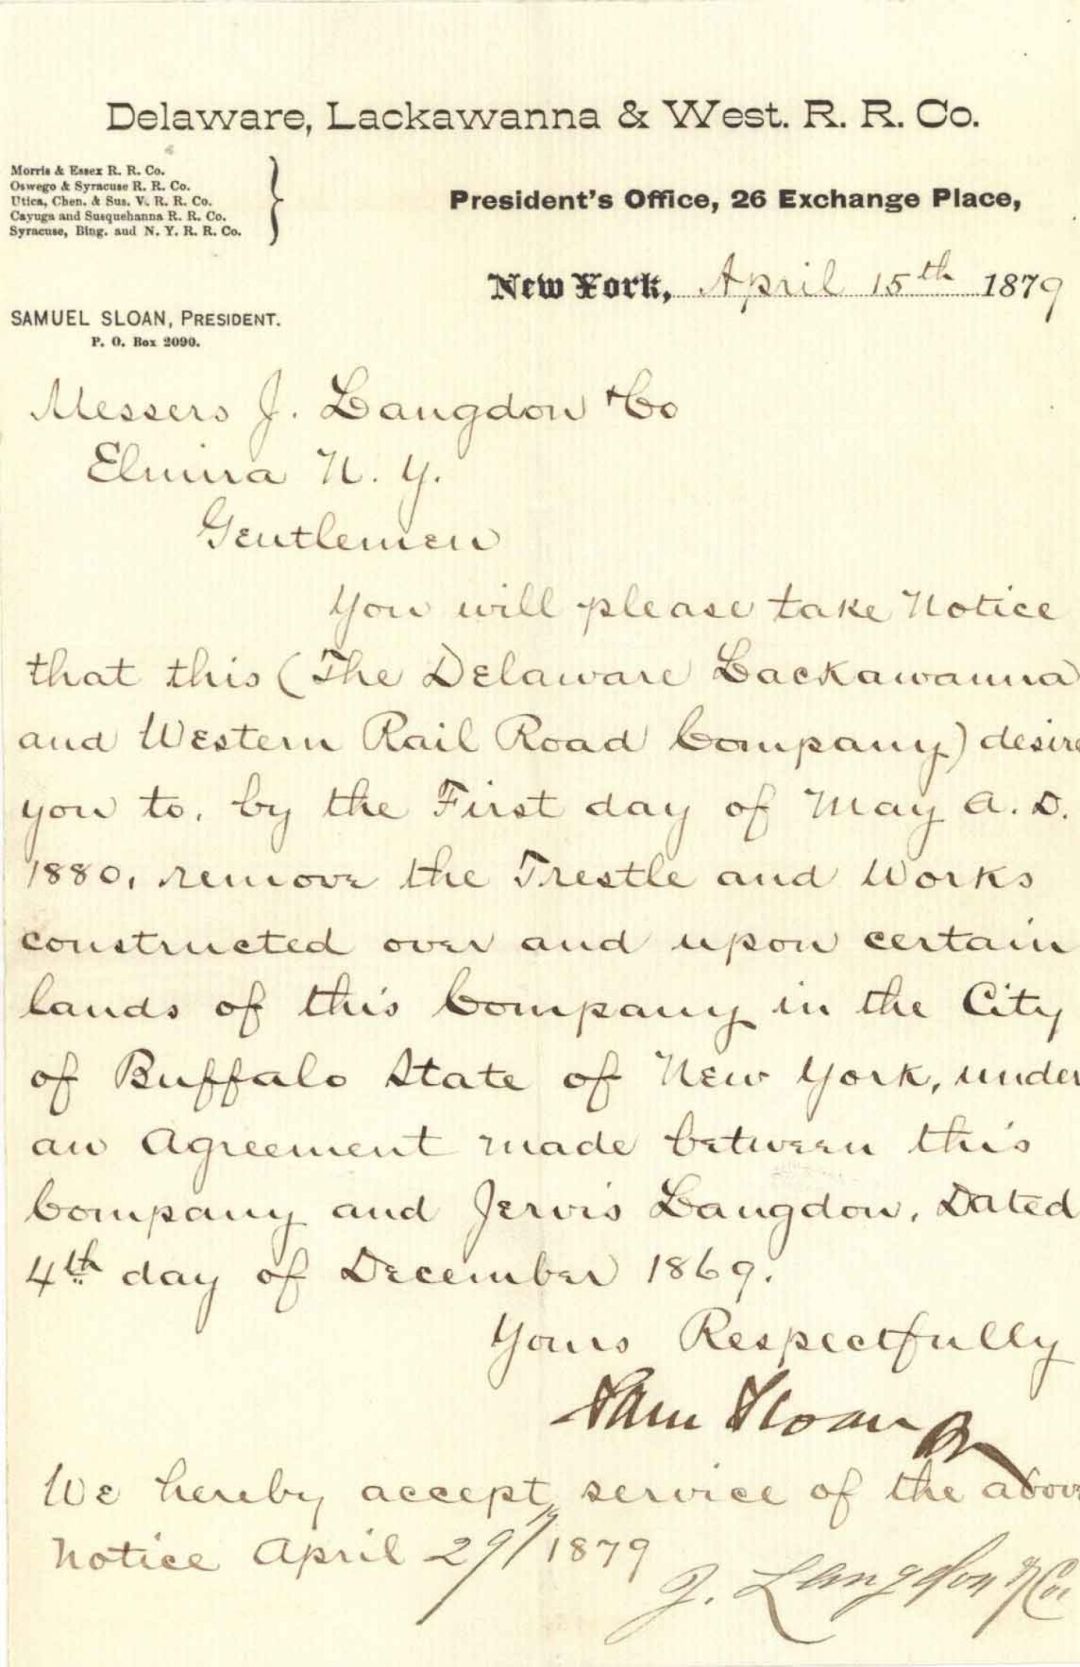 Delaware, Lackawanna & West. R. R. Co.
Morris & Essex R. R. Co.
Oswego & Syracuse R. R. Co.
Utica, Chen. & Sus. V. R. R. Co.
Cayuga and Susquehanna R. R. Co.
Syracuse, Bing. and N. Y. R. R. Co.
President's Office, 26 Exchange Place,
New York, April 15th 1879
SAMUEL SLOAN, PRESIDENT.
P. O. Box 2090.
Messers J. Langdon & Co
Elmira N. Y.
Gentlemen
You will please take Notice
that this (The Delaware Lackawanna
and Western Rail Road Company) desire
you to, by the First day of May A. D.
1880, remove the Trestle and Works
constructed over and upon certain
lands of this Company in the City
of Buffalo State of New York, under
an Agreement made between this
Company and Jervis Langdon, Dated
4th day of December 1869.
Yours Respectfully
Sam Sloan
We hereby accept service of the above
Notice April 29/1879
J. Langdon & Co